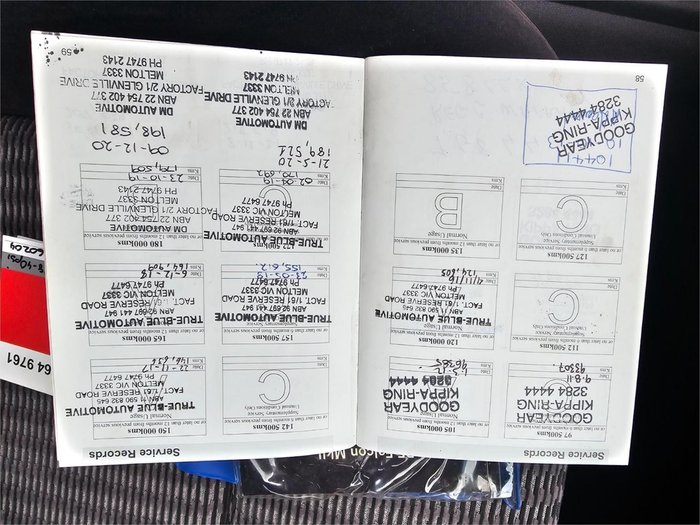 Service Records
97 500kms
or no later than 12 months from previous service
GOODYEAR
KIPPA-RING
3284 4444
9-8-11
105 000kms
or no later than 12 months from previous service
GOODYEAR
KIPPA-RING
3284 4444
112 500kms
or no later than 12 months from previous service
Supplementary Service
Unusual Conditions Only
C
Date
Kms
120 000kms
or no later than 12 months from previous service
Normal Usage
TRUE-BLUE AUTOMOTIVE
ABN 11 590 832 645
FACT. 1/61 RESERVE ROAD
MELTON VIC 3337
Ph 9746 6477
4/11/16
127 500kms
or no later than 12 months from previous service
Supplementary Service
Unusual Conditions Only
C
Date
Kms
135 000kms
or no later than 12 months from previous service
Normal Usage
B
Date
Kms
GOODYEAR
KIPPA-RING
3284 4444
58
Service Records
142 500kms
or no later than 12 months from previous service
Supplementary Service
Unusual Conditions Only
C
Date
Kms
150 000kms
or no later than 12 months from previous service
Normal Usage
TRUE-BLUE AUTOMOTIVE
ABN 11 590 832 645
FACT. 1/61 RESERVE ROAD
MELTON VIC 3337
Ph 9746 6477
22-11-17
146,636
157 500kms
or no later than 12 months from previous service
TRUE-BLUE AUTOMOTIVE
ABN 92 697 441 947
FACT. 1/61 RESERVE ROAD
MELTON VIC 3337
PH 9747 6477
155,612
165 000kms
or no later than 12 months from previous service
TRUE-BLUE AUTOMOTIVE
ABN 92 697 441 947
FACT. 1/61 RESERVE ROAD
MELTON VIC 3337
PH 9747 6477
6-12-18
164,909
or no later than 12 months from previous service
TRUE-BLUE AUTOMOTIVE
ABN 92 697 441 947
FACT. 1/61 RESERVE ROAD
MELTON VIC 3337
PH 9747 6477
170,692
180 000kms
or no later than 12 months from previous service
DM AUTOMOTIVE
ABN 22 754 402 377
FACTORY 2/1 GLENVILLE DRIVE
MELTON 3337
PH 9747 2143
23-10-19
179,509
21-5-20
189,521
DM AUTOMOTIVE
ABN 22 754 402 377
FACTORY 2/1 GLENVILLE DRIVE
MELTON 3337
PH 9747 2143
09-12-20
198,581
DM AUTOMOTIVE
ABN 22 754 402 377
FACTORY 2/1 GLENVILLE DRIVE
MELTON 3337
PH 9747 2143
59
Falcon MkII
64 9761